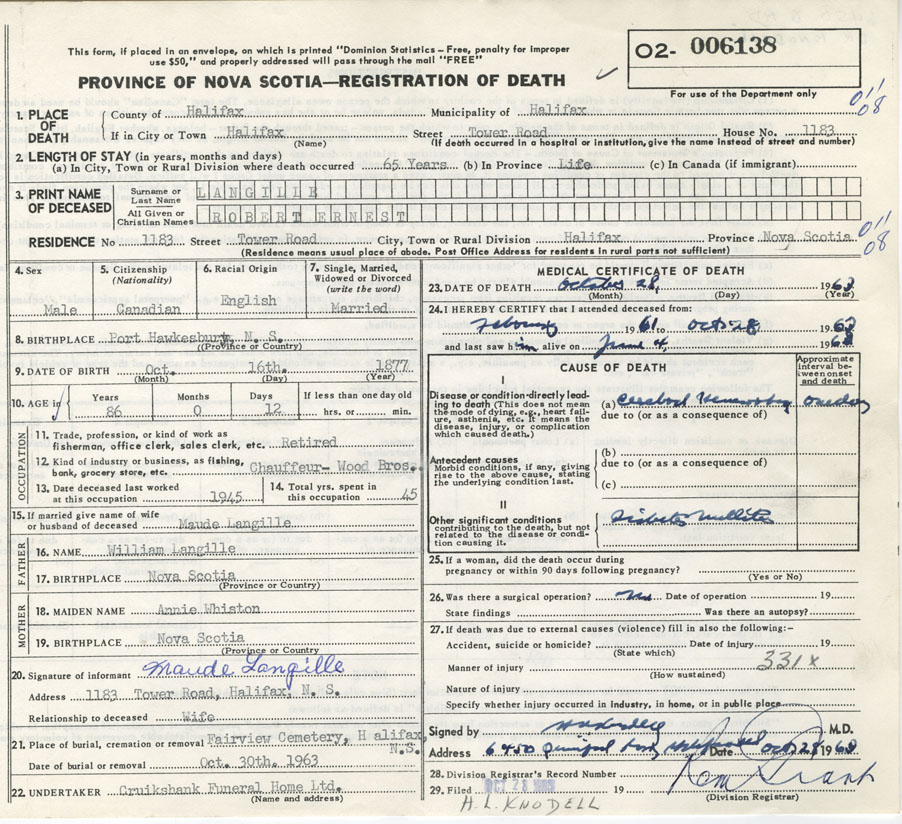 This form, if placed in an envelope, on which is printed "Dominion Statistics – Free, penalty for improper
use $50," and properly addressed will pass through the mail "FREE"
PROVINCE OF NOVA SCOTIA—REGISTRATION OF DEATH
O2- 006138
For use of the Department only
1. PLACE OF DEATH
County of Halifax Municipality of Halifax
If in City or Town Halifax Street Tower Road House No. 1183
(Name) (If death occurred in a hospital or institution, give the name instead of street and number)
2. LENGTH OF STAY (in years, months and days)
(a) In City, Town or Rural Division where death occurred 65 Years (b) In Province Life (c) In Canada (if immigrant)
3. PRINT NAME OF DECEASED
Surname or Last Name LANGILLE
All Given or Christian Names ROBERT ERNEST
RESIDENCE No 1183 Street Tower Road City, Town or Rural Division Halifax Province Nova Scotia
(Residence means usual place of abode. Post Office Address for residents in rural parts not sufficient)
011
08
011
08
4. Sex
Male
5. Citizenship
(Nationality)
Canadian
6. Racial Origin
English
7. Single, Married,
Widowed or Divorced
(write the word)
Married
8. BIRTHPLACE Port Hawkesbury, N. S.
(Province or Country)
9. DATE OF BIRTH Oct. 16th. 1877
(Month) (Day) (Year)
10. AGE in
Years Months Days If less than one day old
86 0 12 hrs. or min.
OCCUPATION
11. Trade, profession, or kind of work as
fisherman, office clerk, sales clerk, etc. Retired
12. Kind of industry or business, as fishing,
bank, grocery store, etc. Chauffeur- Wood Bros.
13. Date deceased last worked
at this occupation 1945
14. Total yrs. spent in
this occupation 45
15. If married give name of wife
or husband of deceased Maude Langille
FATHER
16. NAME William Langille
17. BIRTHPLACE Nova Scotia
(Province or Country)
MOTHER
18. MAIDEN NAME Annie Whiston
19. BIRTHPLACE Nova Scotia
(Province or Country)
20. Signature of informant Maude Langille
Address 1183 Tower Road, Halifax, N. S.
Relationship to deceased Wife
21. Place of burial, cremation or removal Fairview Cemetery, Halifax,
N.S.
Date of burial or removal Oct. 30th. 1963
22. UNDERTAKER Cruikshank Funeral Home Ltd.
(Name and address)
MEDICAL CERTIFICATE OF DEATH
23. DATE OF DEATH October 28, 1963
(Month) (Day) (Year)
24. I HEREBY CERTIFY that I attended deceased from:
1961 to Oct 28 1963
and last saw him alive on June 4, 1963
CAUSE OF DEATH
Approximate
interval be-
tween onset
and death
I
Disease or condition directly lead-
ing to death (This does not mean
the mode of dying, e.g., heart fail-
ure, asthenia, etc. It means the
disease, injury, or complication
which caused death.)
(a) Cerebral Hemorrhage One day
due to (or as a consequence of)
Antecedent causes
Morbid conditions, if any, giving
rise to the above cause, stating
the underlying condition last.
(b)
due to (or as a consequence of)
(c)
II
Other significant conditions
contributing to the death, but not
related to the disease or condi-
tion causing it.
Diabetes Mellitus
25. If a woman, did the death occur during
pregnancy or within 90 days following pregnancy?
(Yes or No)
26. Was there a surgical operation? No Date of operation 19
State findings Was there an autopsy?
27. If death was due to external causes (violence) fill in also the following:–
Accident, suicide or homicide? Date of injury 19
(State which)
331x
Manner of injury
(How sustained)
Nature of injury
Specify whether injury occurred in industry, in home, or in public place
Signed by M.D.
Address 6450 Date Oct 28 1963
28. Division Registrar's Record Number
29. Filed OCT 28 19
(Division Registrar)
H. L. KNODELL